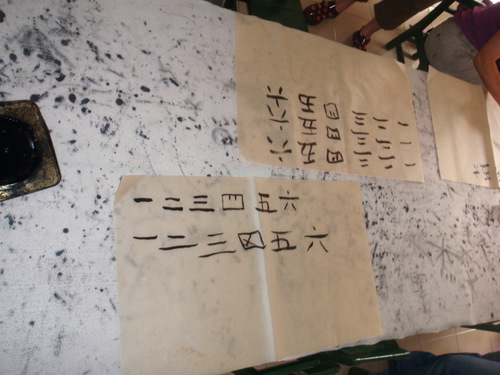 一一一
二二二
三三三
四四四
五五五
六六六
一二三四五六
一二三四五六